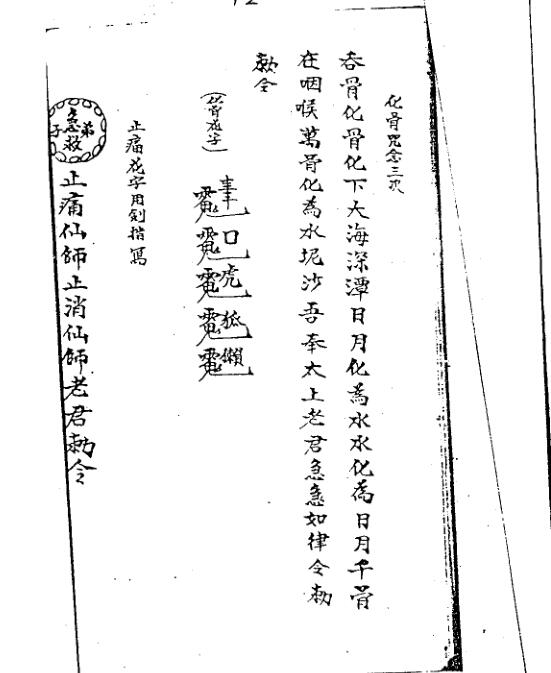 12
化骨咒念三次
吞骨化骨化下大海深潭日月化為水水化為日月千骨
在咽喉萬骨化為水坭沙吾奉太上老君急急如律令勅
勅令
(化骨花字)
口虎狐獺
止痛花字用劍指寫
急救弟子
止痛仙師止消仙師老君勅令